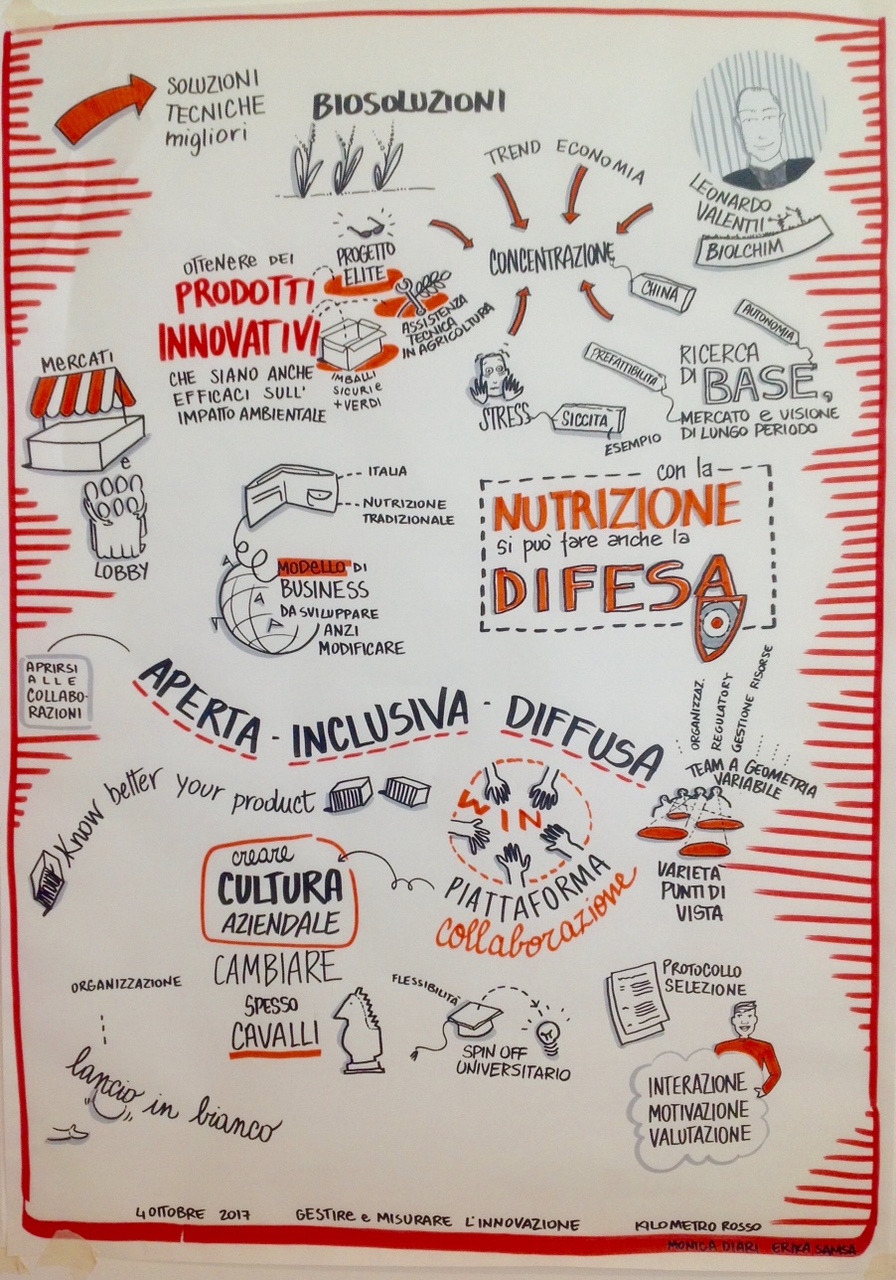 SOLUZIONI
TECNICHE
migliori
BIOSOLUZIONI
TREND ECONOMIA
LEONARDO
VALENTI
BIOLCHIM
CONCENTRAZIONE
CHINA
OTTENERE DEI
PRODOTTI
INNOVATIVI
CHE SIANO ANCHE
EFFICACI SULL'
IMPATTO AMBIENTALE
PROGETTO
ELITE
ASSISTENZA
TECNICA
IN AGRICOLTURA
IMBALLI
SICURI e
+ VERDI
STRESS
SICCITA
ESEMPIO
PREFATTIBILITA
AUTONOMIA
RICERCA
DI BASE,
MERCATO e VISIONE
DI LUNGO PERIODO
MERCATI
e
LOBBY
ITALIA
NUTRIZIONE
TRADIZIONALE
MODELLO DI
BUSINESS
DA SVILUPPARE
ANZI
MODIFICARE
con la
NUTRIZIONE
si può fare anche la
DIFESA
APRIRSI
ALLE
COLLABO-
RAZIONI
APERTA - INCLUSIVA - DIFFUSA
ORGANIZZAZ.
REGULATORY
GESTIONE RISORSE
TEAM A GEOMETRIA
VARIABILE
VARIETA'
PUNTI DI
VISTA
Know better your product
WIN
PIATTAFORMA
collaborazione
creare
CULTURA
AZIENDALE
CAMBIARE
SPESSO
CAVALLI
ORGANIZZAZIONE
lancio in bianco
FLESSIBILITA'
SPIN OFF
UNIVERSITARIO
PROTOCOLLO
SELEZIONE
INTERAZIONE
MOTIVAZIONE
VALUTAZIONE
4 OTTOBRE 2017 GESTIRE e MISURARE L'INNOVAZIONE KILOMETRO ROSSO
MONICA DIARI ERIKA SAMSA